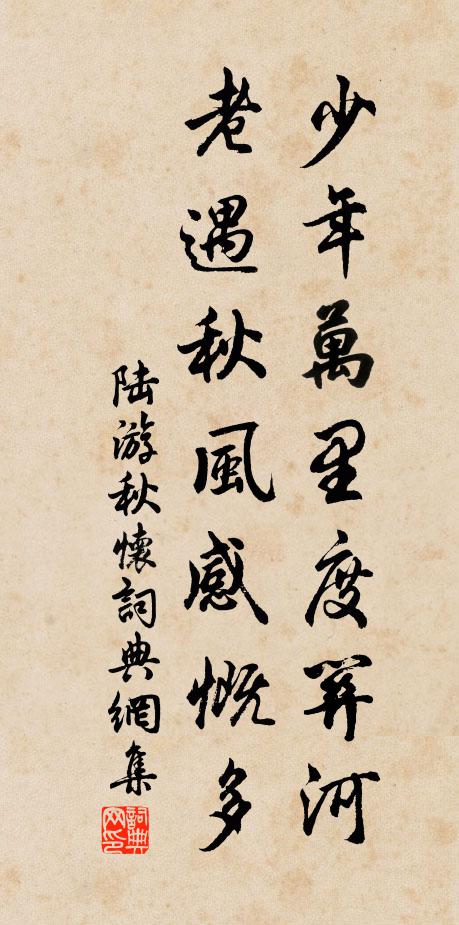 少年萬里度關河
老遇秋風感慨多
陆游秋懷詞典網集
詞典網印